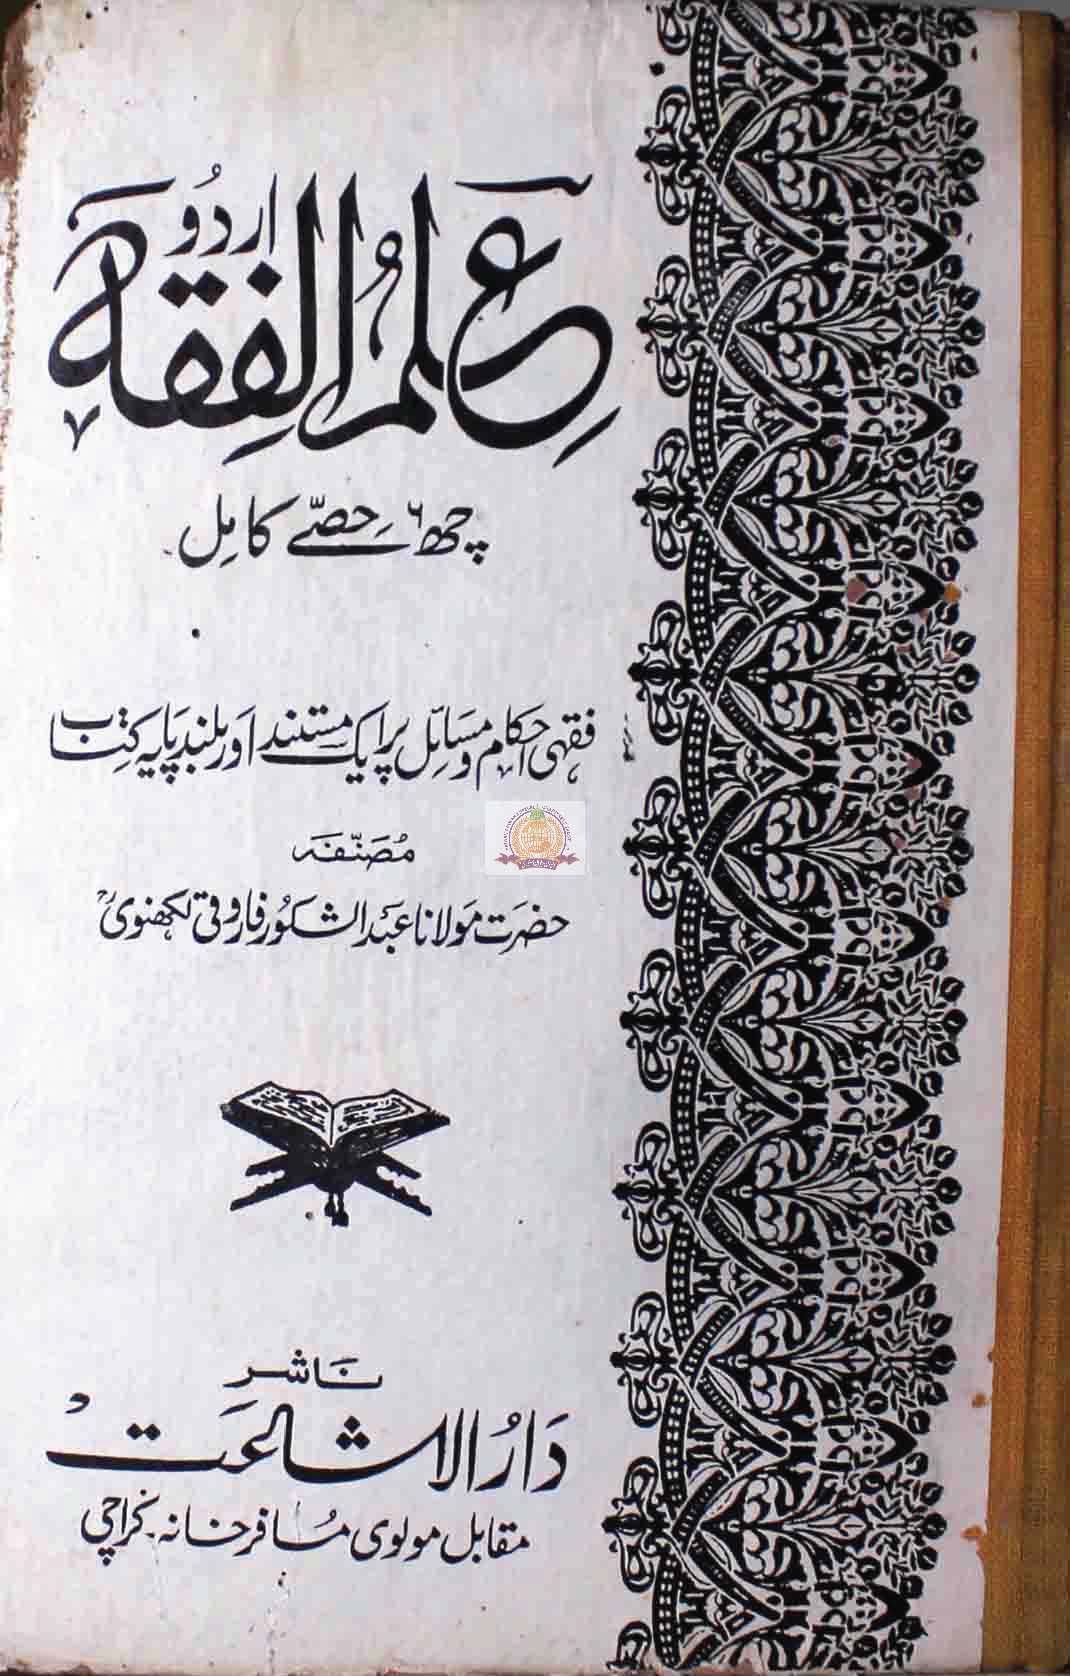 علم الفقہ اردو
چھ ۶ حصّے کامل
فقہی احکام و مسائل پر ایک مستند اور بلند پایہ کتاب
مُصَنّفہ
حضرت مولانا عبد الشکور فاروقی لکھنوی ؒ
ناشر
دَارُالاشاعَت
مقابل مولوی مُسافر خانہ۔ کراچی